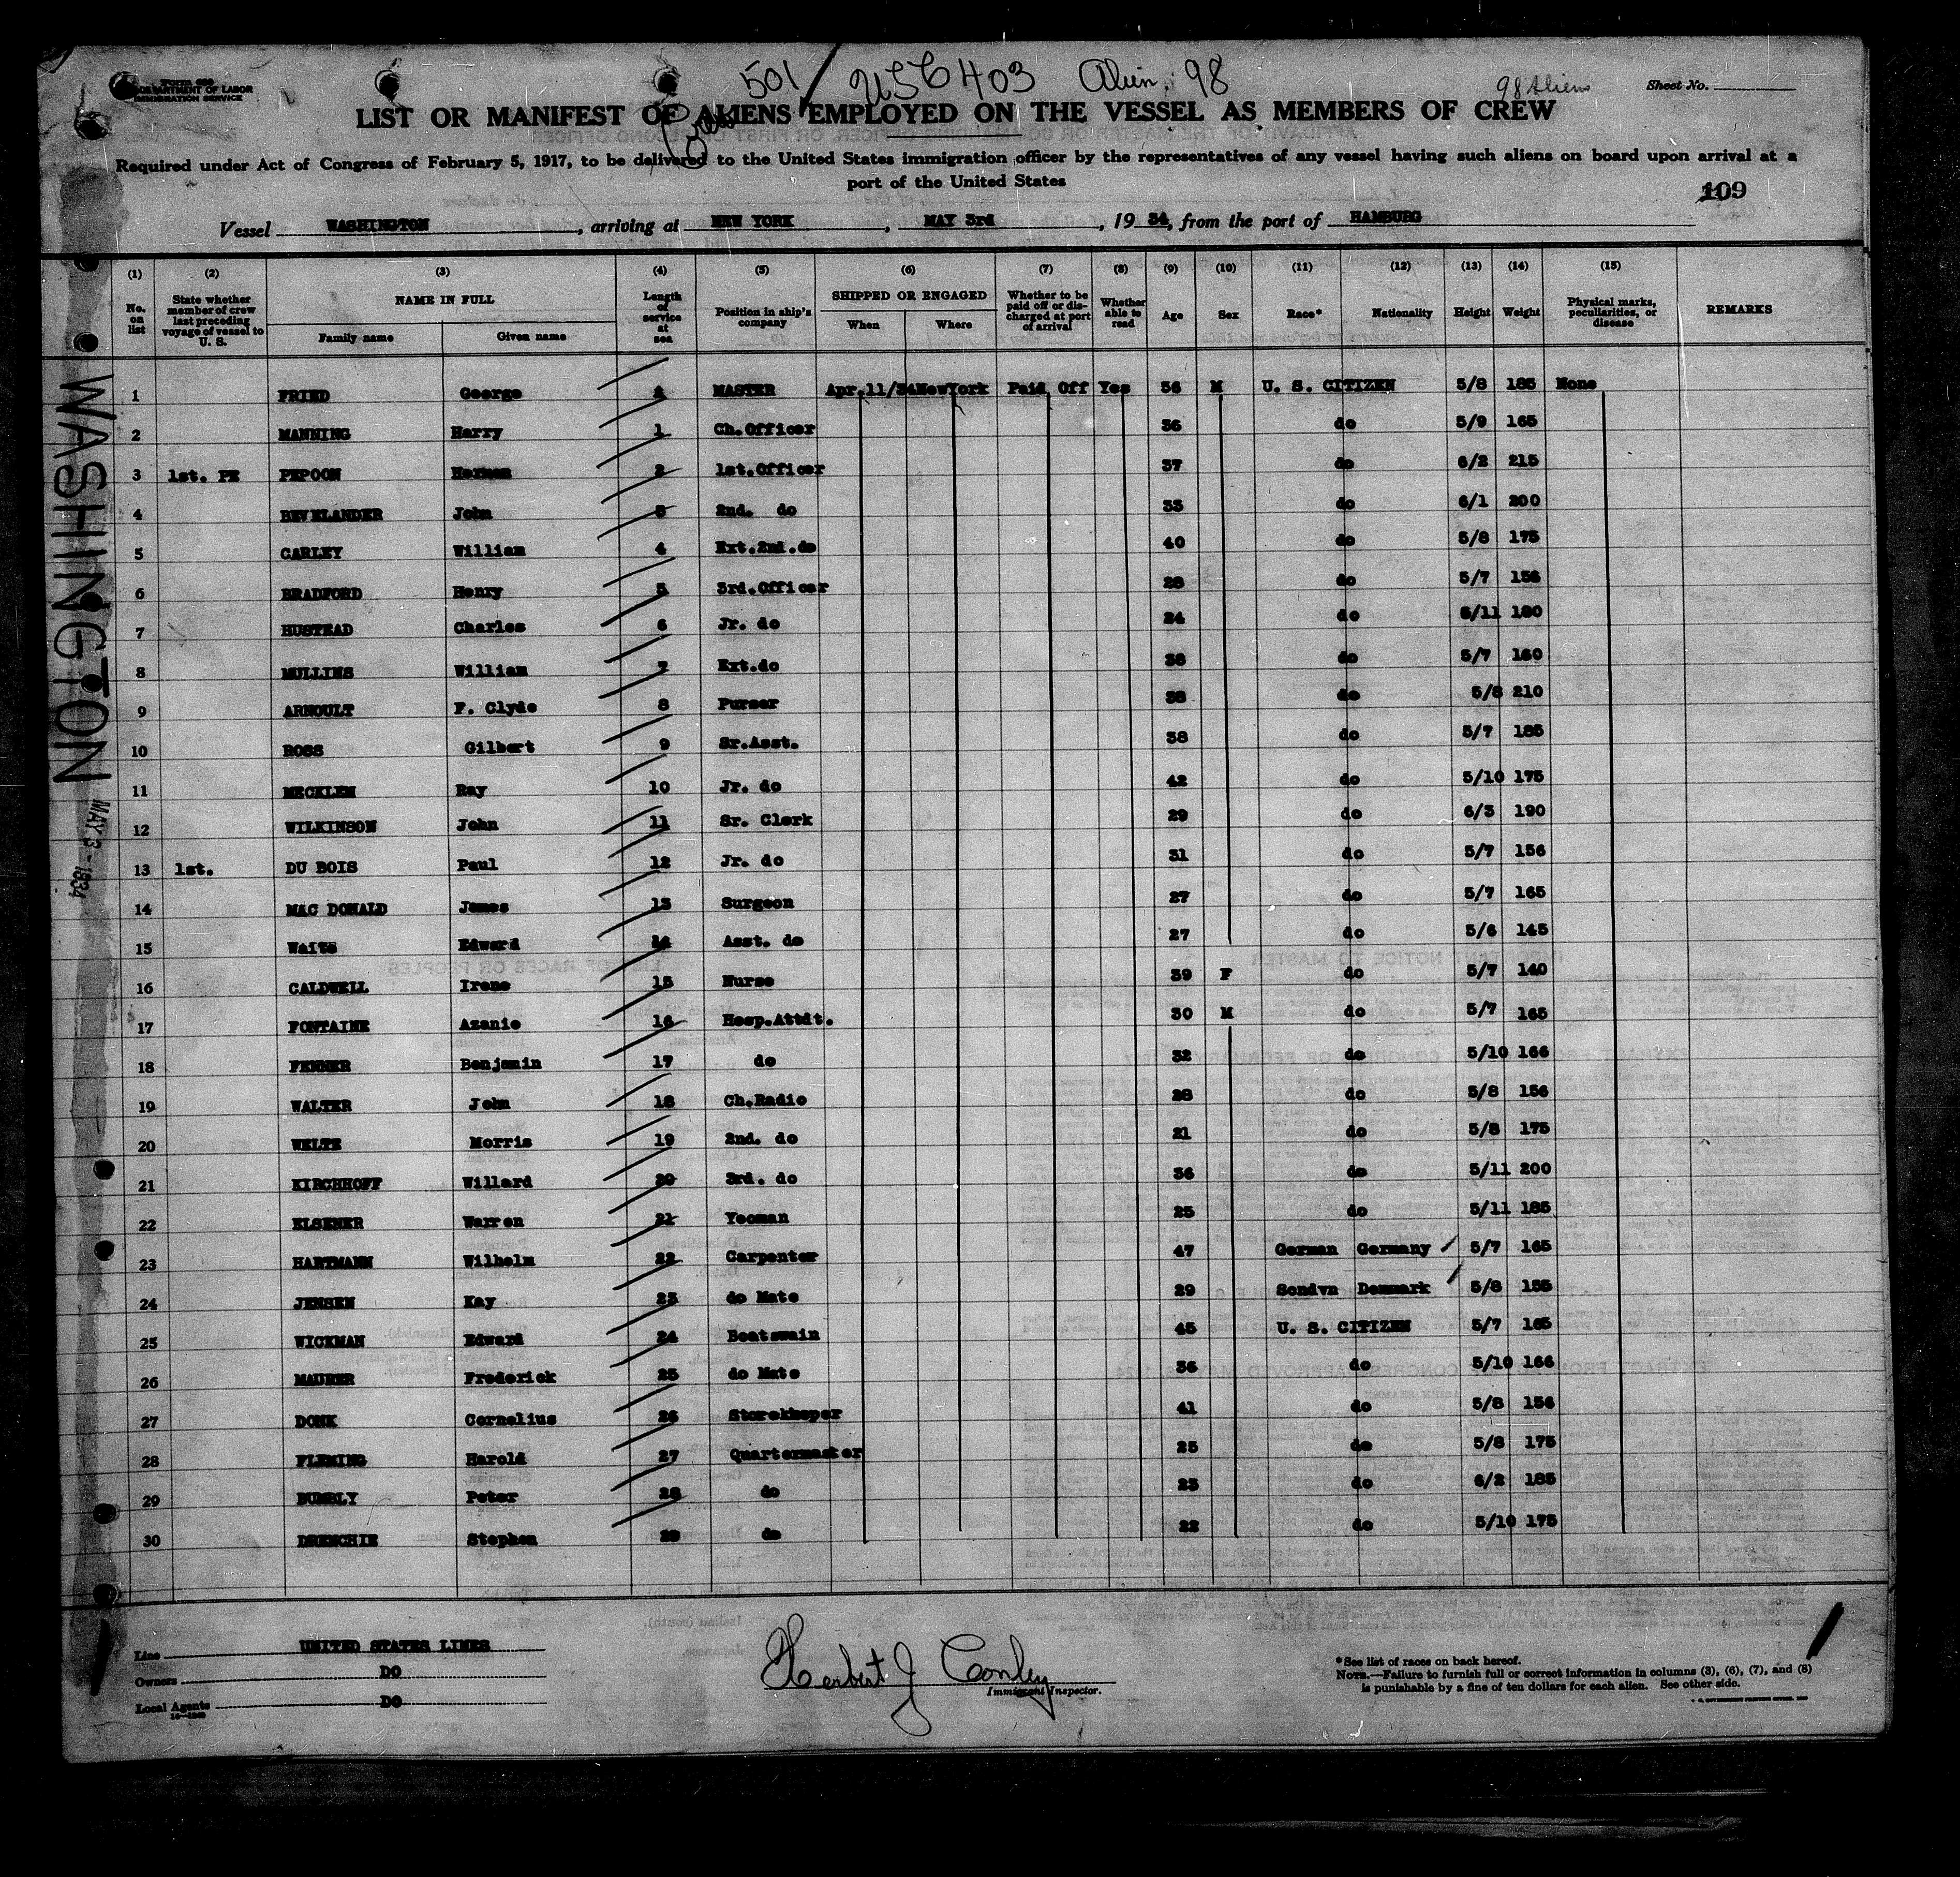 FORM 689
DEPARTMENT OF LABOR
IMMIGRATION SERVICE
501 / USC 403 Alien 98
98 Aliens
Sheet No.
Crew
LIST OR MANIFEST OF ALIENS EMPLOYED ON THE VESSEL AS MEMBERS OF CREW
Required under Act of Congress of February 5, 1917, to be delivered to the United States immigration officer by the representatives of any vessel having such aliens on board upon arrival at a
port of the United States
109
Vessel WASHINGTON, arriving at NEW YORK, MAY 3rd, 1934, from the port of HAMBURG
(1) (2) (3) (4) (5) (6) (7) (8) (9) (10) (11) (12) (13) (14) (15)
No. on list State whether member of crew last preceding voyage of vessel to U. S. NAME IN FULL Family name Given name Length of service at sea Position in ship's company SHIPPED OR ENGAGED When Where Whether to be paid off or discharged at port of arrival Whether able to read Age Sex Race* Nationality Height Weight Physical marks, peculiarities, or disease REMARKS
1 FRIED George MASTER Apr.11/34 NewYork Paid Off Yes 56 M U. S. CITIZEN 5/8 185 None
2 MANNING Harry 1 Ch.Officer 36 do 5/9 165
3 1st. PE PEPOON Herman 2 1st.Officer 37 do 6/2 215
4 BEVELANDER John 3 2nd. do 33 do 6/1 200
5 CARLEY William 4 Ext.2nd.do 40 do 5/8 175
6 BRADFORD Henry 5 3rd.Officer 28 do 5/7 156
7 HUSTEAD Charles 6 Jr. do 24 do 5/11 180
8 MULLINS William 7 Ext.do 38 do 5/7 160
9 ARNOULT F. Clyde 8 Purser 38 do 5/8 210
10 ROSS Gilbert 9 Sr.Asst. 38 do 5/7 185
11 MECKLEM Ray 10 Jr. do 42 do 5/10 175
12 WILKINSON John 11 Sr. Clerk 29 do 6/3 190
13 1st. DU BOIS Paul 12 Jr. do 31 do 5/7 156
14 MAC DONALD James 13 Surgeon 27 do 5/7 165
15 Waits Edward 14 Asst. do 27 do 5/6 145
16 CALDWELL Irene 15 Nurse 39 F do 5/7 140
17 FONTAINE Azanie 16 Hosp.Attdt. 30 M do 5/7 165
18 FENNER Benjamin 17 do 32 do 5/10 166
19 WALTER John 18 Ch.Radio 28 do 5/8 156
20 WELTE Morris 19 2nd. do 21 do 5/8 175
21 KIRCHHOFF Willard 20 3rd. do 36 do 5/11 200
22 ELSENER Warren 21 Yeoman 25 do 5/11 185
23 HARTMANN Wilhelm 22 Carpenter 47 German Germany 5/7 165
24 JENSEN Kay 23 do Mate 29 Scndvn Denmark 5/8 155
25 WICKMAN Edward 24 Boatswain 45 U. S. CITIZEN 5/7 165
26 MAURER Frederick 25 do Mate 36 do 5/10 166
27 DONK Cornelius 26 Storekeeper 41 do 5/8 156
28 FLEMING Harold 27 Quartermaster 25 do 5/8 175
29 Peter 28 do 23 do 6/2 185
30 Stephen 29 do 22 do 5/10 175
WASHINGTON
MAY 3 - 1934
Line UNITED STATES LINES
Owners DO
Local Agents DO
Herbert J Conley
Immigrant Inspector.
*See list of races on back hereof.
NOTE.—Failure to furnish full or correct information in columns (3), (6), (7), and (8)
is punishable by a fine of ten dollars for each alien. See other side.